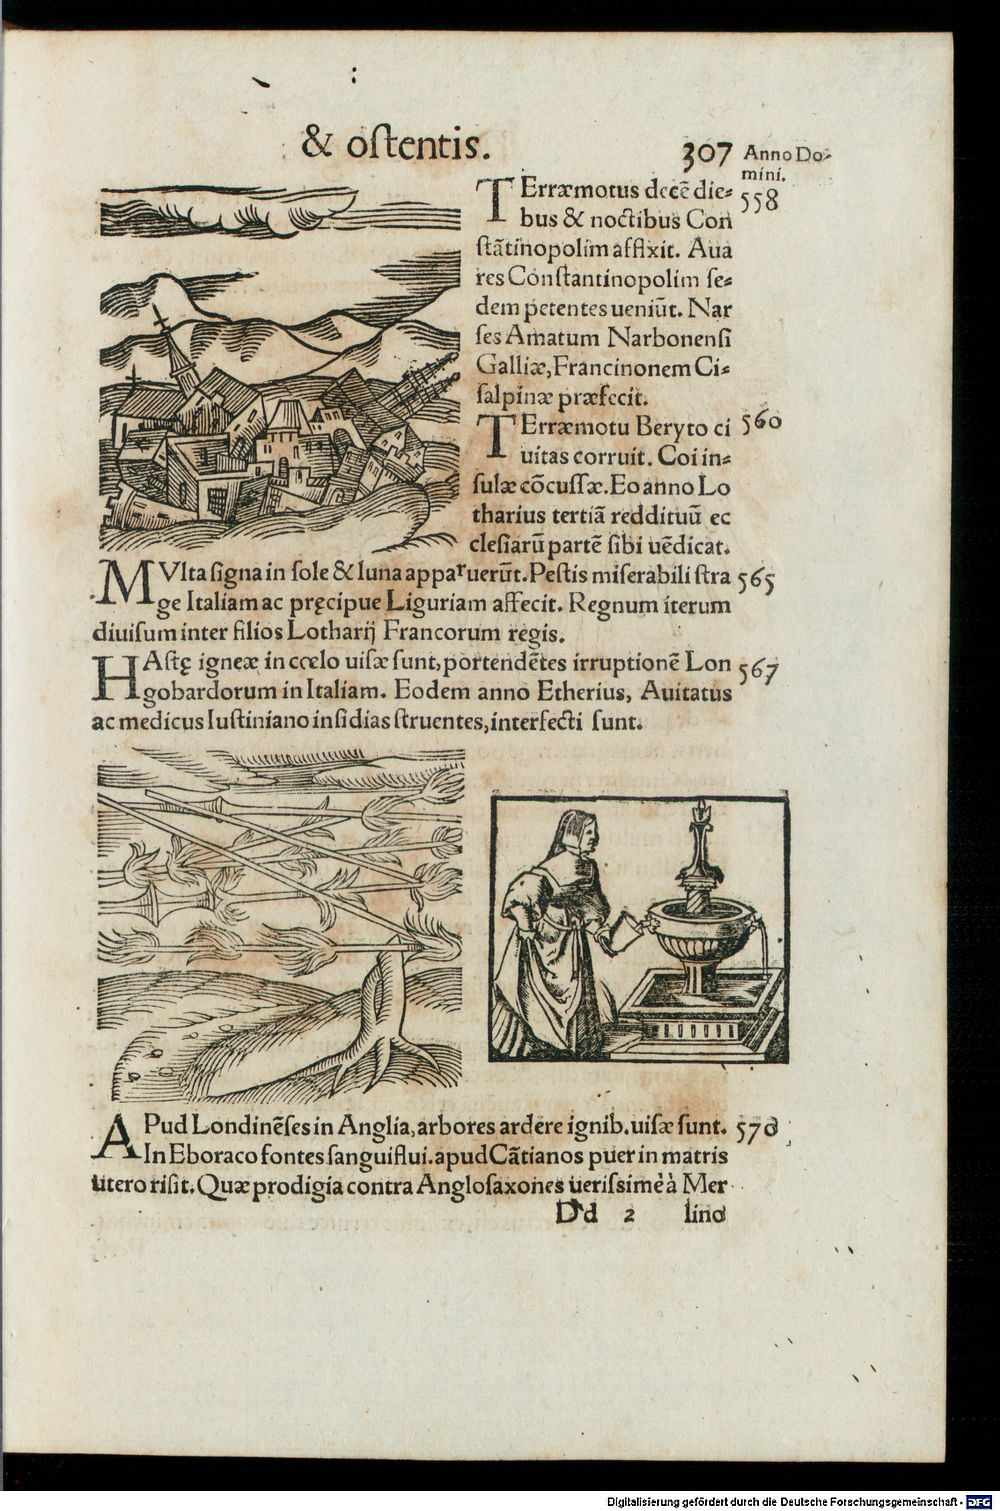 & ostentis. 307 Anno Do-
mini.
TErræmotus decē die- 558
bus & noctibus Con
stātinopolim afflixit. Aua
res Constantinopolim se-
dem petentes ueniūt. Nar
ses Amatum Narbonensi
Galliæ, Francinonem Ci-
salpinæ præfecit.
TErræmotu Beryto ci 560
uitas corruit. Coi in-
sulæ cōcussæ. Eo anno Lo
tharius tertiā reddituū ec
clesiarū partē sibi uēdicat.
MVlta signa in sole & luna apparuerūt. Pestis miserabili stra 565
ge Italiam ac pręcipue Liguriam affecit. Regnum iterum
diuisum inter filios Lotharij Francorum regis.
HAstę igneæ in cœlo uisæ sunt, portendētes irruptionē Lon 567
gobardorum in Italiam. Eodem anno Etherius, Auitatus
ac medicus Iustiniano insidias struentes, interfecti sunt.
APud Londinēses in Anglia, arbores ardere ignib. uisæ sunt. 570
In Eboraco fontes sanguiflui. apud Cātianos puer in matris
utero risit. Quæ prodigia contra Anglosaxones uerissimè à Mer
Dd 2 lino
Digitalisierung gefördert durch die Deutsche Forschungsgemeinschaft - DFG